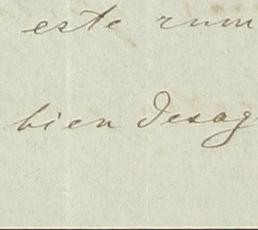 este rum
bien desag